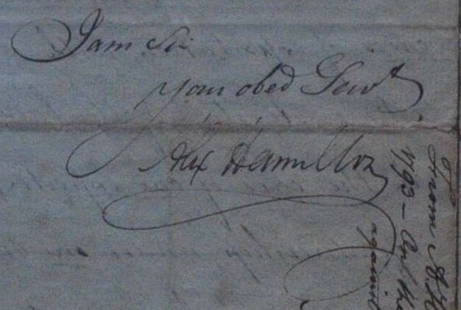 I am Sir
your obed Servt
Alex Hamilton
From A H
1793 -
against